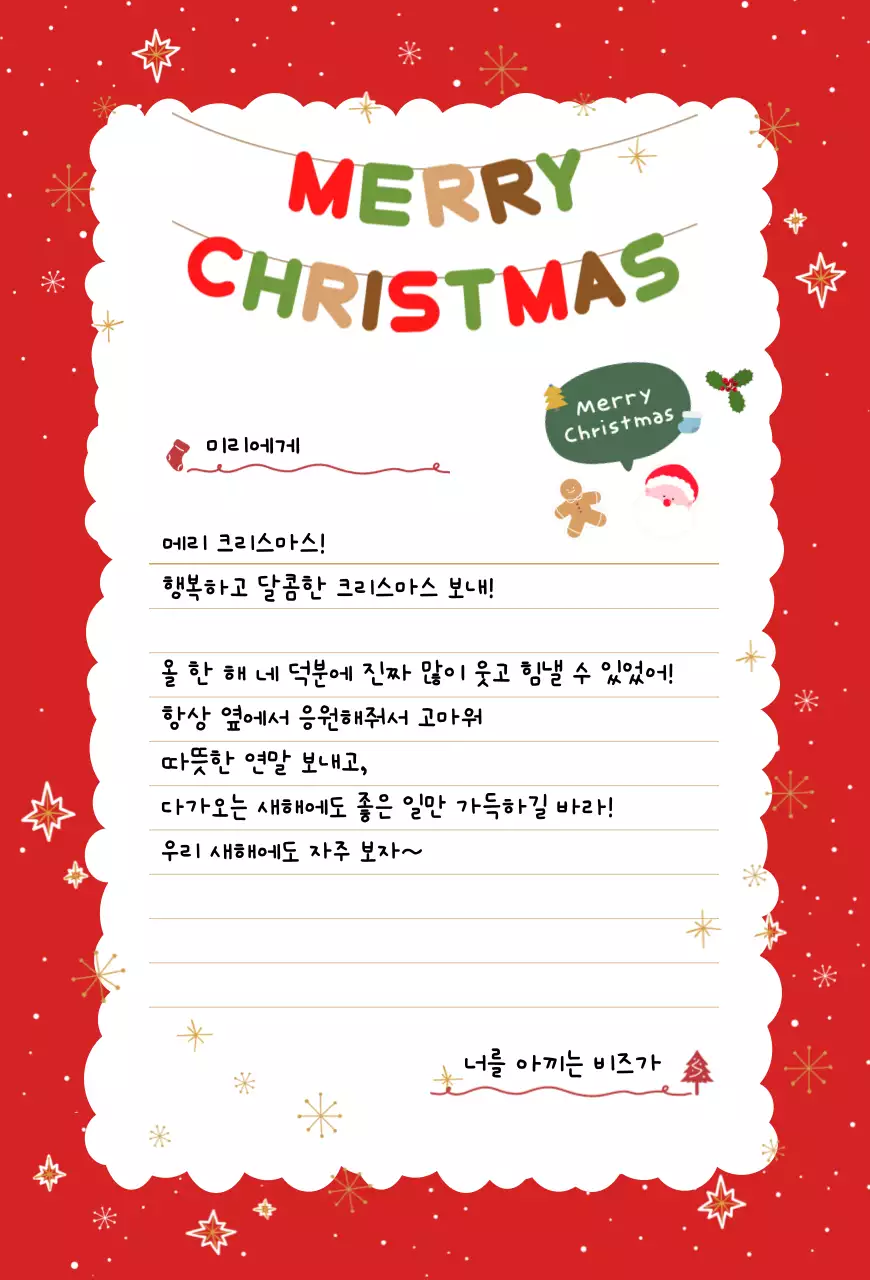 MERRY
CHRISTMAS
Merry
Christmas
미리에게
메리 크리스마스!
행복하고 달콤한 크리스마스 보내!
올 한 해 네 덕분에 진짜 많이 웃고 힘낼 수 있었어!
항상 옆에서 응원해줘서 고마워
따뜻한 연말 보내고,
다가오는 새해에도 좋은 일만 가득하길 바라!
우리 새해에도 자주 보자~
너를 아끼는 비즈가